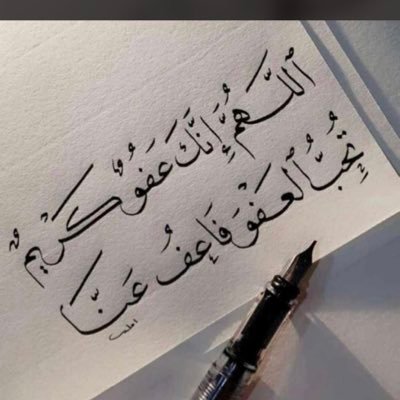 اللَّهُمَّ إِنَّكَ عَفُوٌّ كَرِيمٌ
تُحِبُّ العَفْوَ فَاعْفُ عَنَّا